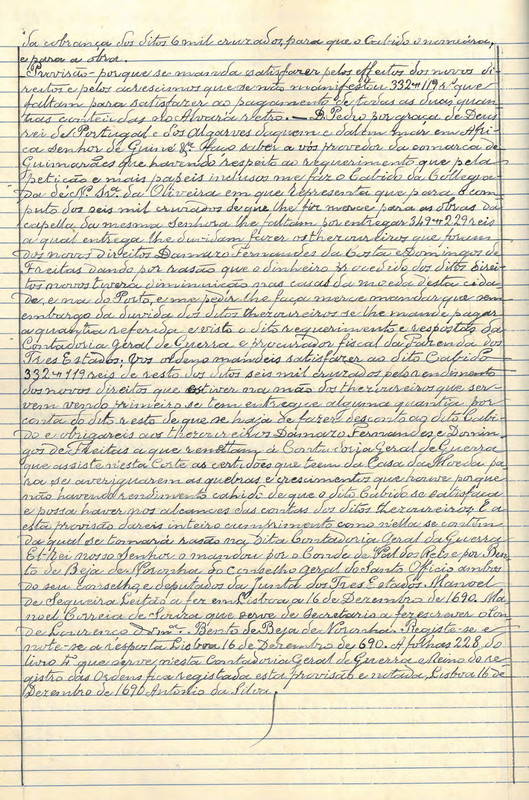 da cobrança dos ditos 6 mil cruzados, para que o Cabido o nomeára,
e para a obra.
Provisão - porque se manda satisfazer pelos effeitos dos novos di-
reitos e pelos acrescimos que se não manifestou 332 119 rs que
faltam para satisfazer ao pagamento de todas as duas quan-
tias conteudas no Alvará retro. — D. Pedro por graça de Deus
rei de Portugal e dos Algarves daquem e dalem mar em Afri-
ca senhor de Guiné &ª. Faço saber a vós provedor da comarca de
Guimarães que havendo respeito ao requerimento que pela
petição e mais papeis inclusos me fez o Cabido da Collegia-
da de N. Srª. da Oliveira em que representa que para o com-
puto dos seis mil cruzados de que lhe fiz mercê para as obras da
capella da mesma Senhora lhe faltam por entregar 349 229 reis
a qual entrega lhe duvidam fazer os thezoureiros que foram
dos novos direitos Damazo Fernandes da Costa e Domingos de
Freitas dando por rasão que o dinheiro procedido dos ditos direi-
tos novos tivera diminuição nas casas da moeda desta cida-
de, e na do Porto, e me pedir lhe faça mercê mandar que sem
embargo da duvida dos ditos thezoureiros se lhe mande pagar
a quantia referida e visto o dito requerimento e respostas da
Contadoria Geral de Guerra e procurador fiscal da Fazenda dos
Tres Estados. Vos ordeno mandeis satisfazer ao dito Cabido
332 119 reis de resto dos ditos seis mil cruzados pelo rendimento
dos novos direitos que estiver na mão dos thezoureiros que ser-
vem vendo primeiro se tem entregue alguma quantia por
conta do dito resto de que se haja de fazer desconto ao dito Cabi-
do e obrigareis aos thezoureiros Damazo Fernandes e Domin-
gos de Freitas a que remettam á Contadoria Geral de Guerra
que assiste nesta Corte as certidões que teem da Casa da Moeda pa-
ra se averiguarem as quebras e crescimentos que houve porque
não havendo rendimento cahido de que o dito Cabido se satisfaça
e possa haver nos alcances das contas dos ditos thezoureiros. E a
esta provisão dareis inteiro cumprimento como nella se contém
da qual se tomará rasão na dita Contadoria Geral da Guerra.
El-rei nosso Senhor o mandou por o Conde de Val dos Reis e por Ben-
to de Beja de Noronha do Conselho Geral do Santo Officio ambos
do seu conselho e deputados da Junta dos Tres Estados. Manoel
de Sequeira Leitão a fez em Lisboa a 16 de Dezembro de 1690. Ma-
noel Correia de Souza que serve de Secretario a fez escrever o Con-
de Lourenço Bento de Beja de Noronha. Registe-se e
note-se a resposta Lisboa 16 de Dezembro de 690. A folhas 228 do
livro 4º que serve nesta Contadoria Geral de Guerra e Reino do re-
gistro das Ordens fica registada esta provisão e notada, Lisboa 16 de
Dezembro de 1690 Antonio da Silva.